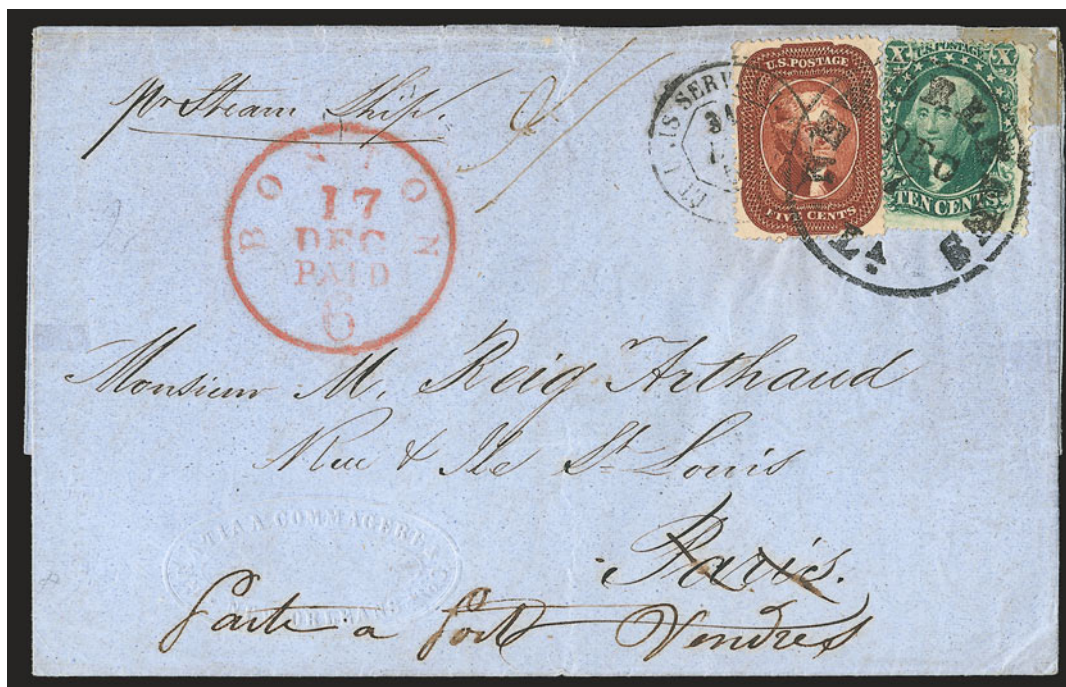 pr Steam Ship.
BOSTON
17
DEC
PAID
6
SERV
31
U.S. POSTAGE
FIVE CENTS
X U.S. POSTAGE X
TEN CENTS
DEC
Monsieur M. Reig n Arthaud
Rue & Ile St. Louis
Paris.
COMMAGERE
Parti a Port Vendres